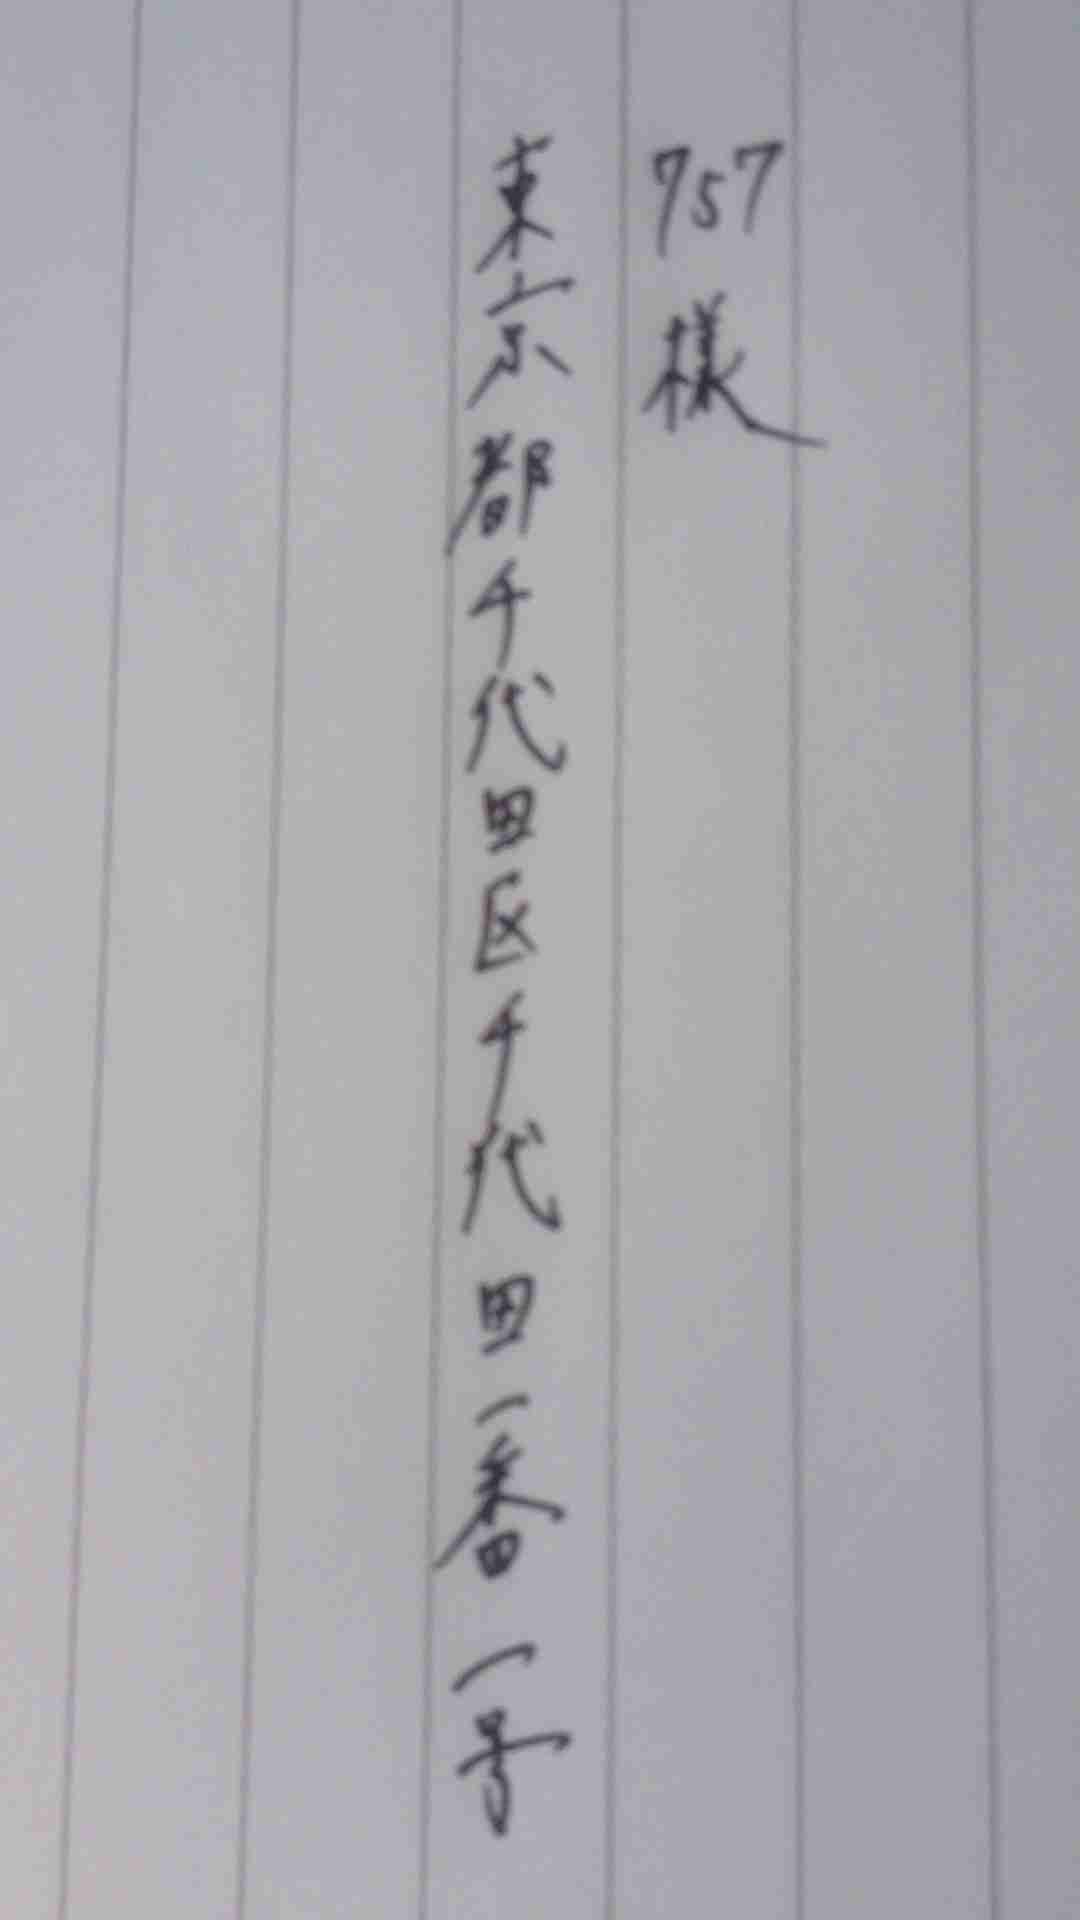 757様
東京都千代田区千代田一番一号